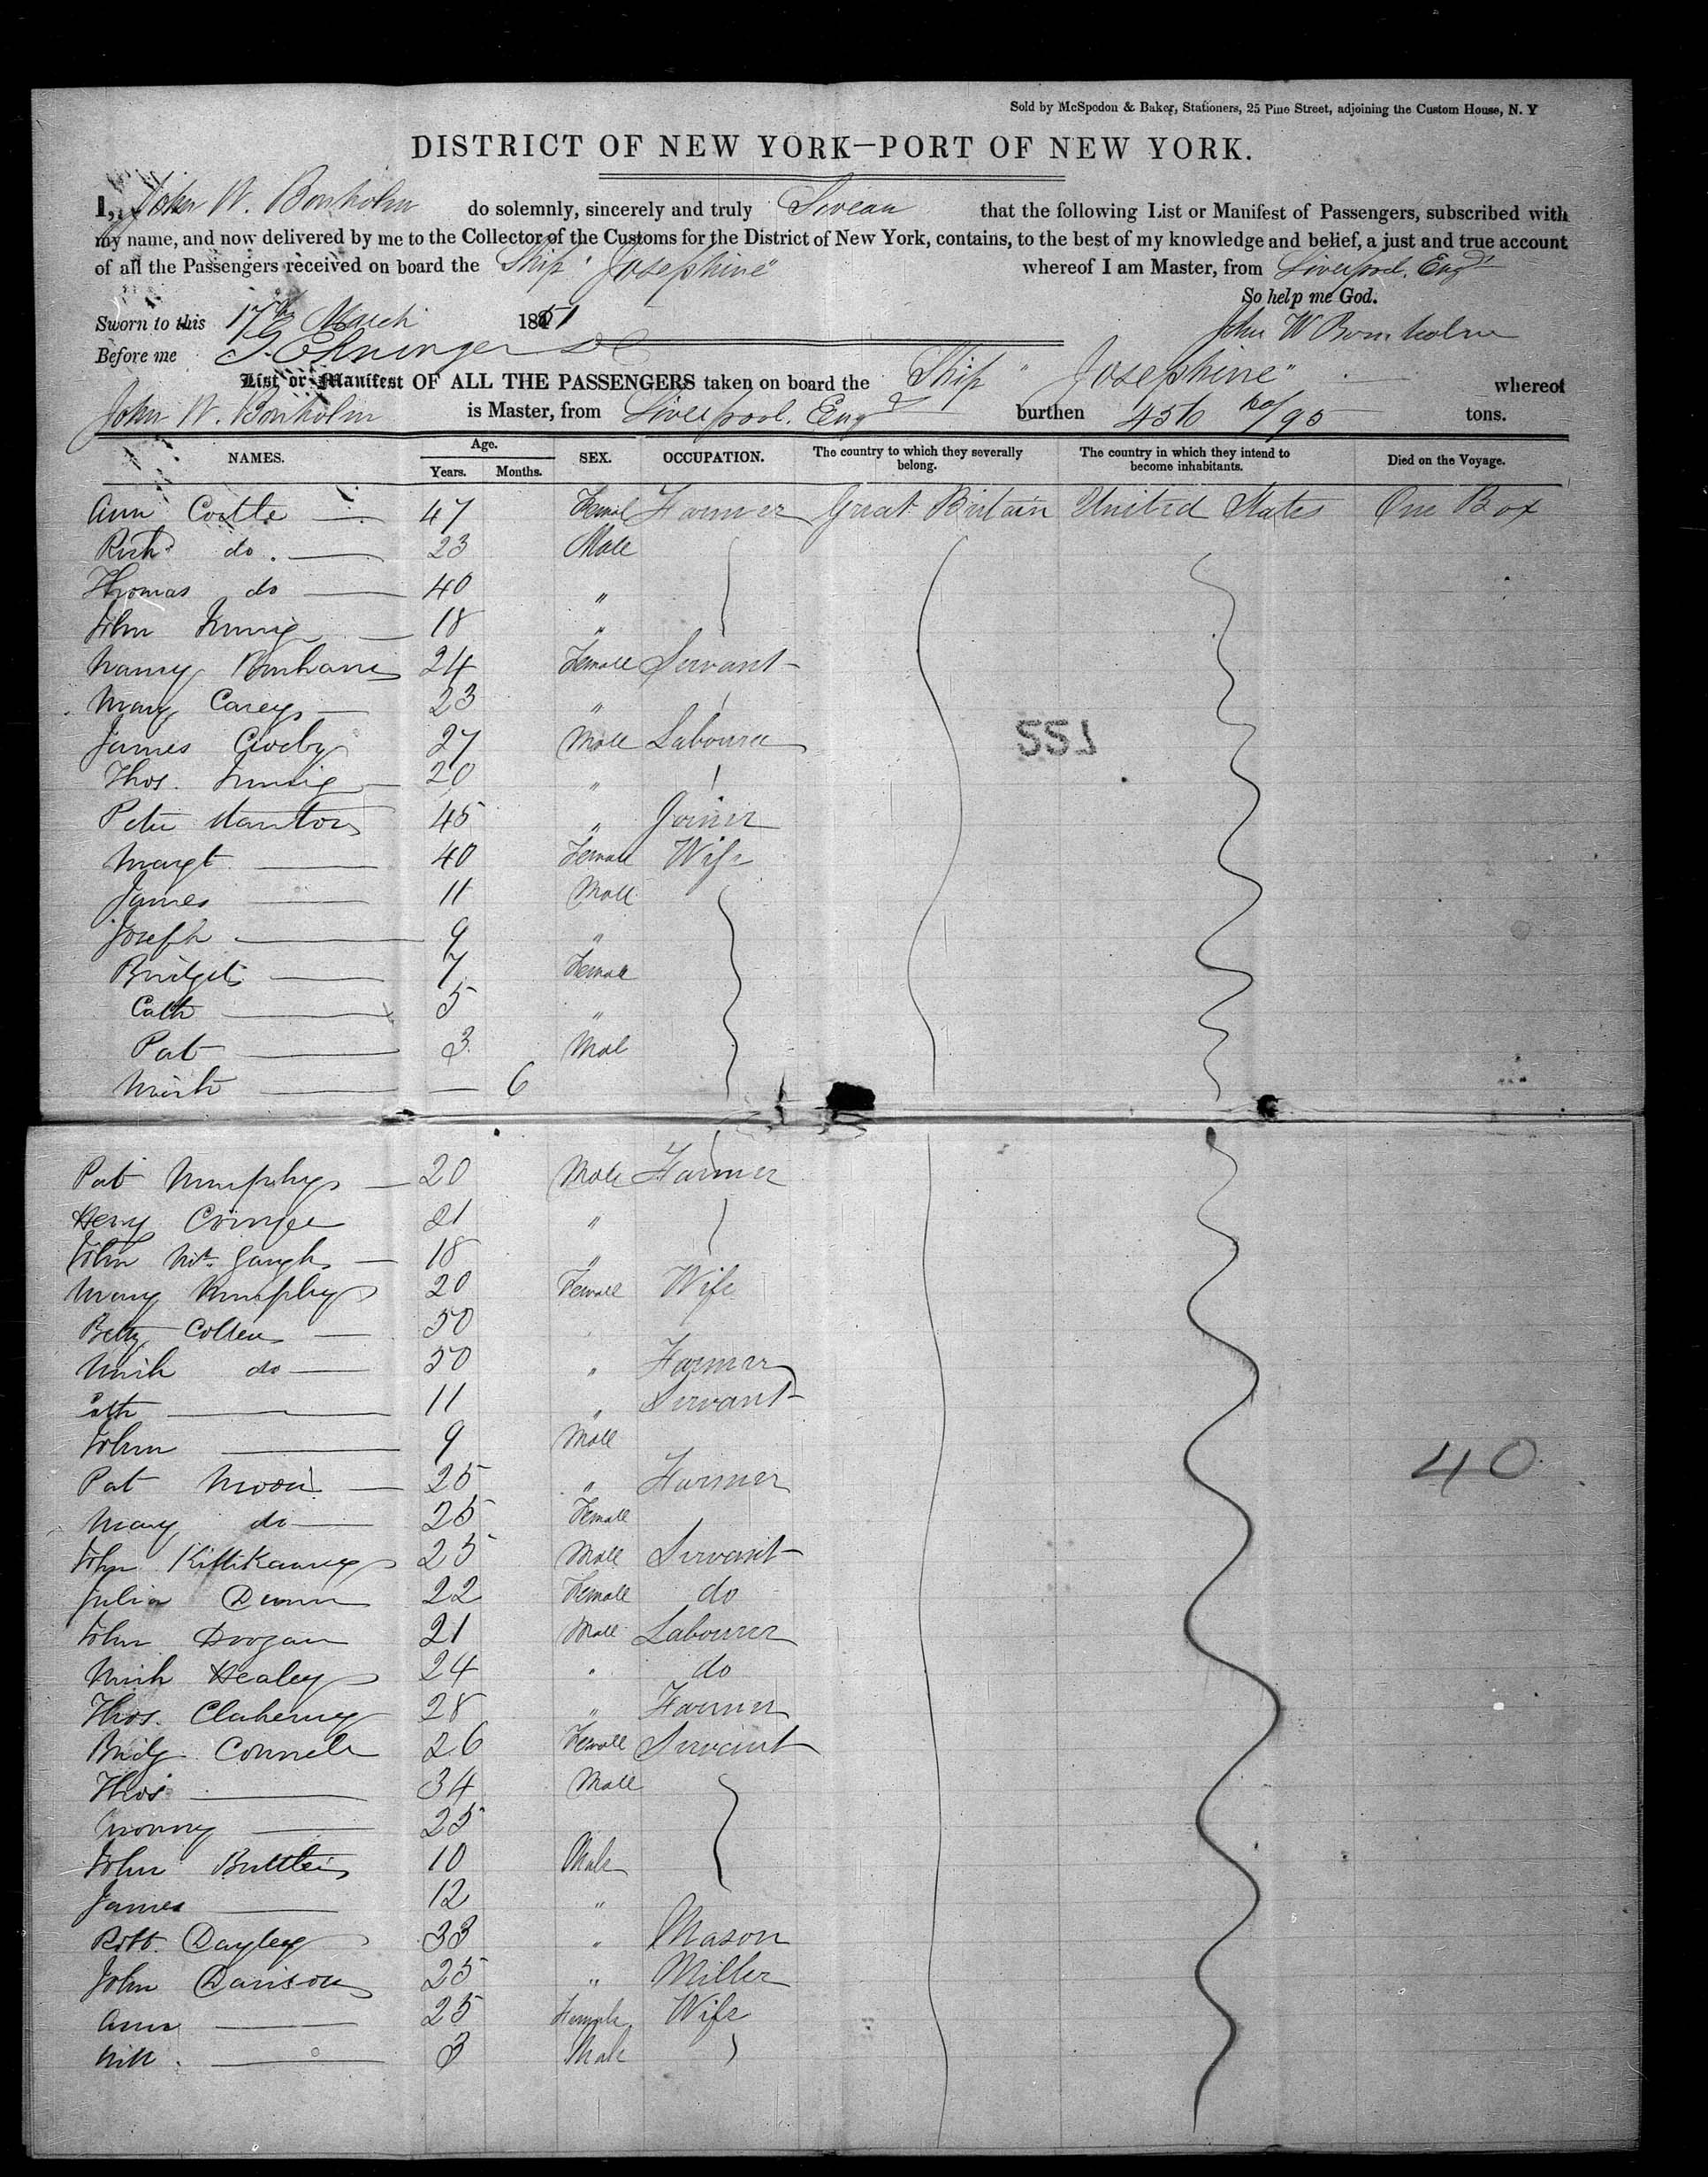 Sold by McSpedon & Baker, Stationers, 25 Pine Street, adjoining the Custom House, N. Y
DISTRICT OF NEW YORK—PORT OF NEW YORK.
I, John W. Bonholm do solemnly, sincerely and truly Swear that the following List or Manifest of Passengers, subscribed with
my name, and now delivered by me to the Collector of the Customs for the District of New York, contains, to the best of my knowledge and belief, a just and true account
of all the Passengers received on board the Ship "Josephine" whereof I am Master, from Liverpool, Engd
So help me God.
Sworn to this 17th March 1851 John W Bornholm
Before me
List or Manifest OF ALL THE PASSENGERS taken on board the Ship "Josephine" whereof
John W. Bonholm is Master, from Liverpool, Eng burthen 456 /95 tons.
NAMES. Age. Years. Months. SEX. OCCUPATION. The country to which they severally belong. The country in which they intend to become inhabitants. Died on the Voyage.
Ann Costle 47 Femal Farmer Great Britain United States One Box
Richd do. 23 Male
Thomas do 40 "
John 18 "
Nancy 24 Female Servant
Mary Carey 23 "
James 27 Male Labourer
Thos. 20 "
Peter Stanton 45 " Joiner
Margt 40 Female Wife
James 11 Male
Joseph 9 "
Bridget 7 Female
Cath 5 "
Pat 3 Mal
Mich — 6
Pat Murphy 20 Male Farmer
Heny 21 "
John 18 "
Mary Murphy 20 Female Wife
Betty Collen 50
Mich do 50 " Farmer
Cath 11 " Servant
John 9 Male
40
Pat 25 " Farmer
Mary do 25 Female
John 25 Male Servant
Julia Dunn 22 Female do
John Doogan 21 Male Labourer
Mich Healey 24 " do
Thos. 28 " Farmer
Bridg Connell 26 Female Servant
Thos 34 Male
25
John 10 Male
James 12 "
Robt. Dayley 33 " Mason
John Davison 25 " Miller
Ann 25 Female Wife
3 Male